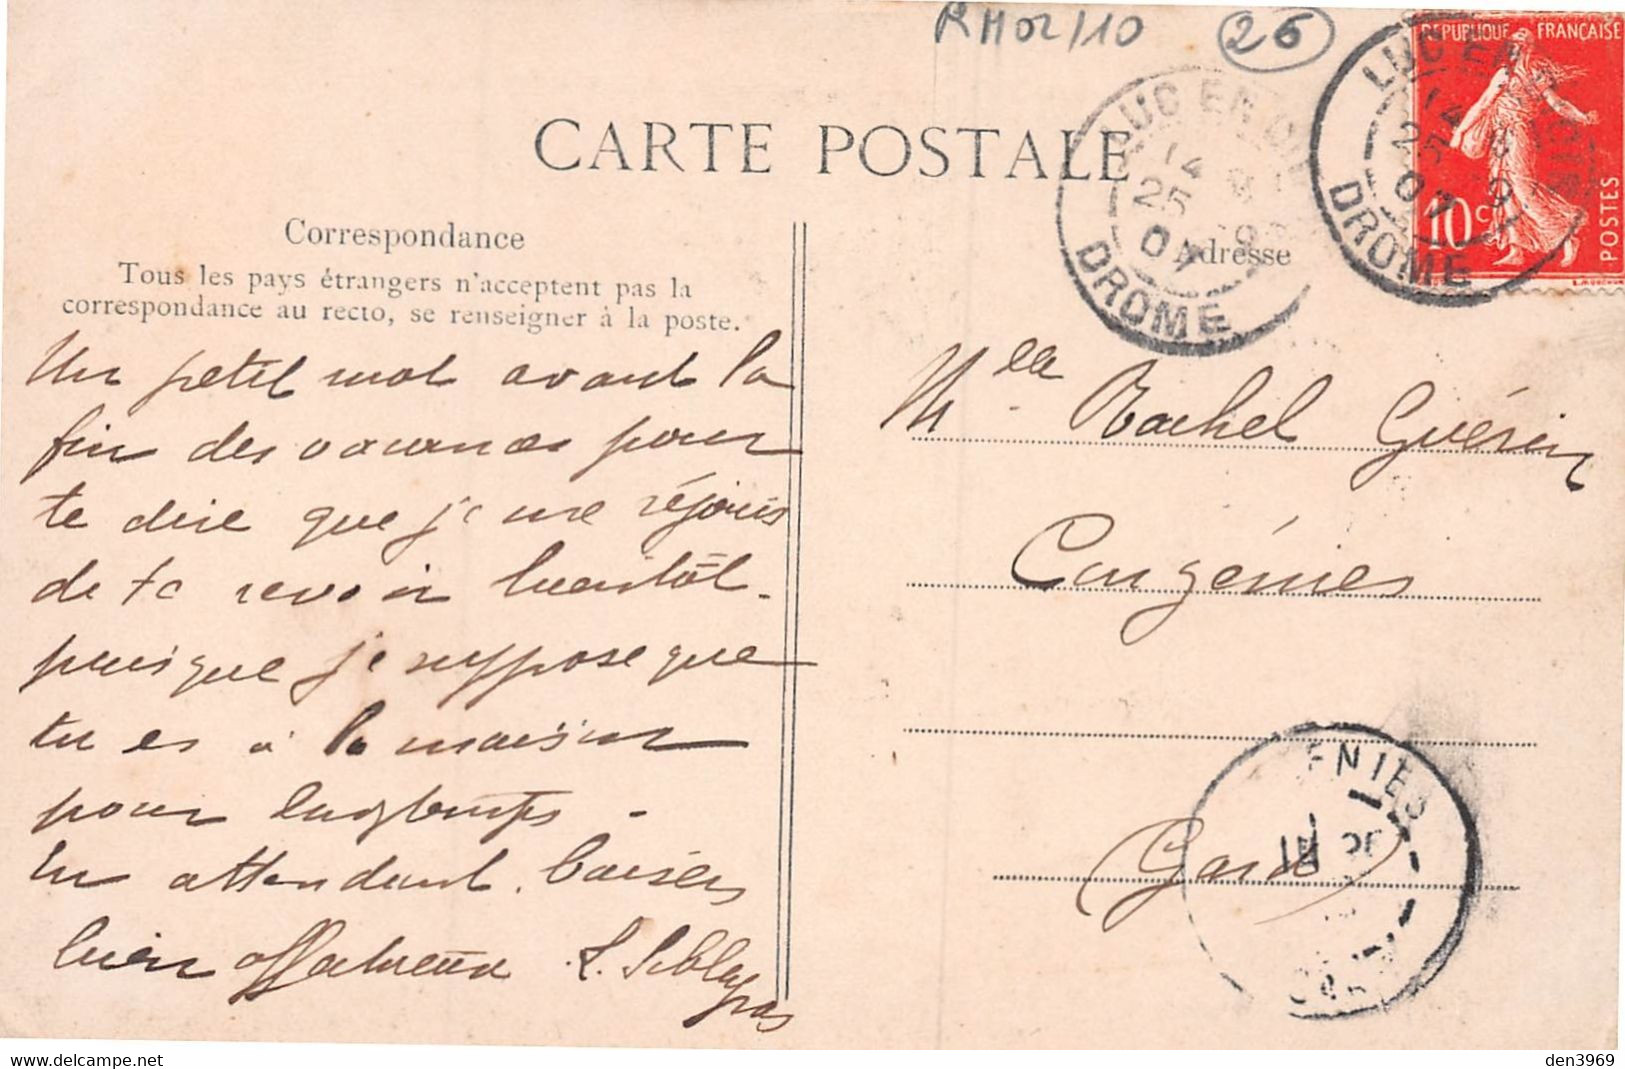 RM02/10 26
REPUBLIQUE FRANÇAISE
10c POSTES
LUC EN DIOIS
14
25
07
DROME
LUC EN DIOIS
14
25
07
DROME
CARTE POSTALE
Correspondance
Tous les pays étrangers n'acceptent pas la
correspondance au recto, se renseigner à la poste.
Adresse
Un petit mot avant la
fin des vacances pour
te dire que je me réjouis
de te revoir bientôt
puisque je suppose que
tu es à la maison
pour longtemps.
En attendant baisers
bien affectueux S. Seblayas
Melle Rachel Guérin
Congénies
Gard
ENIES
den3969